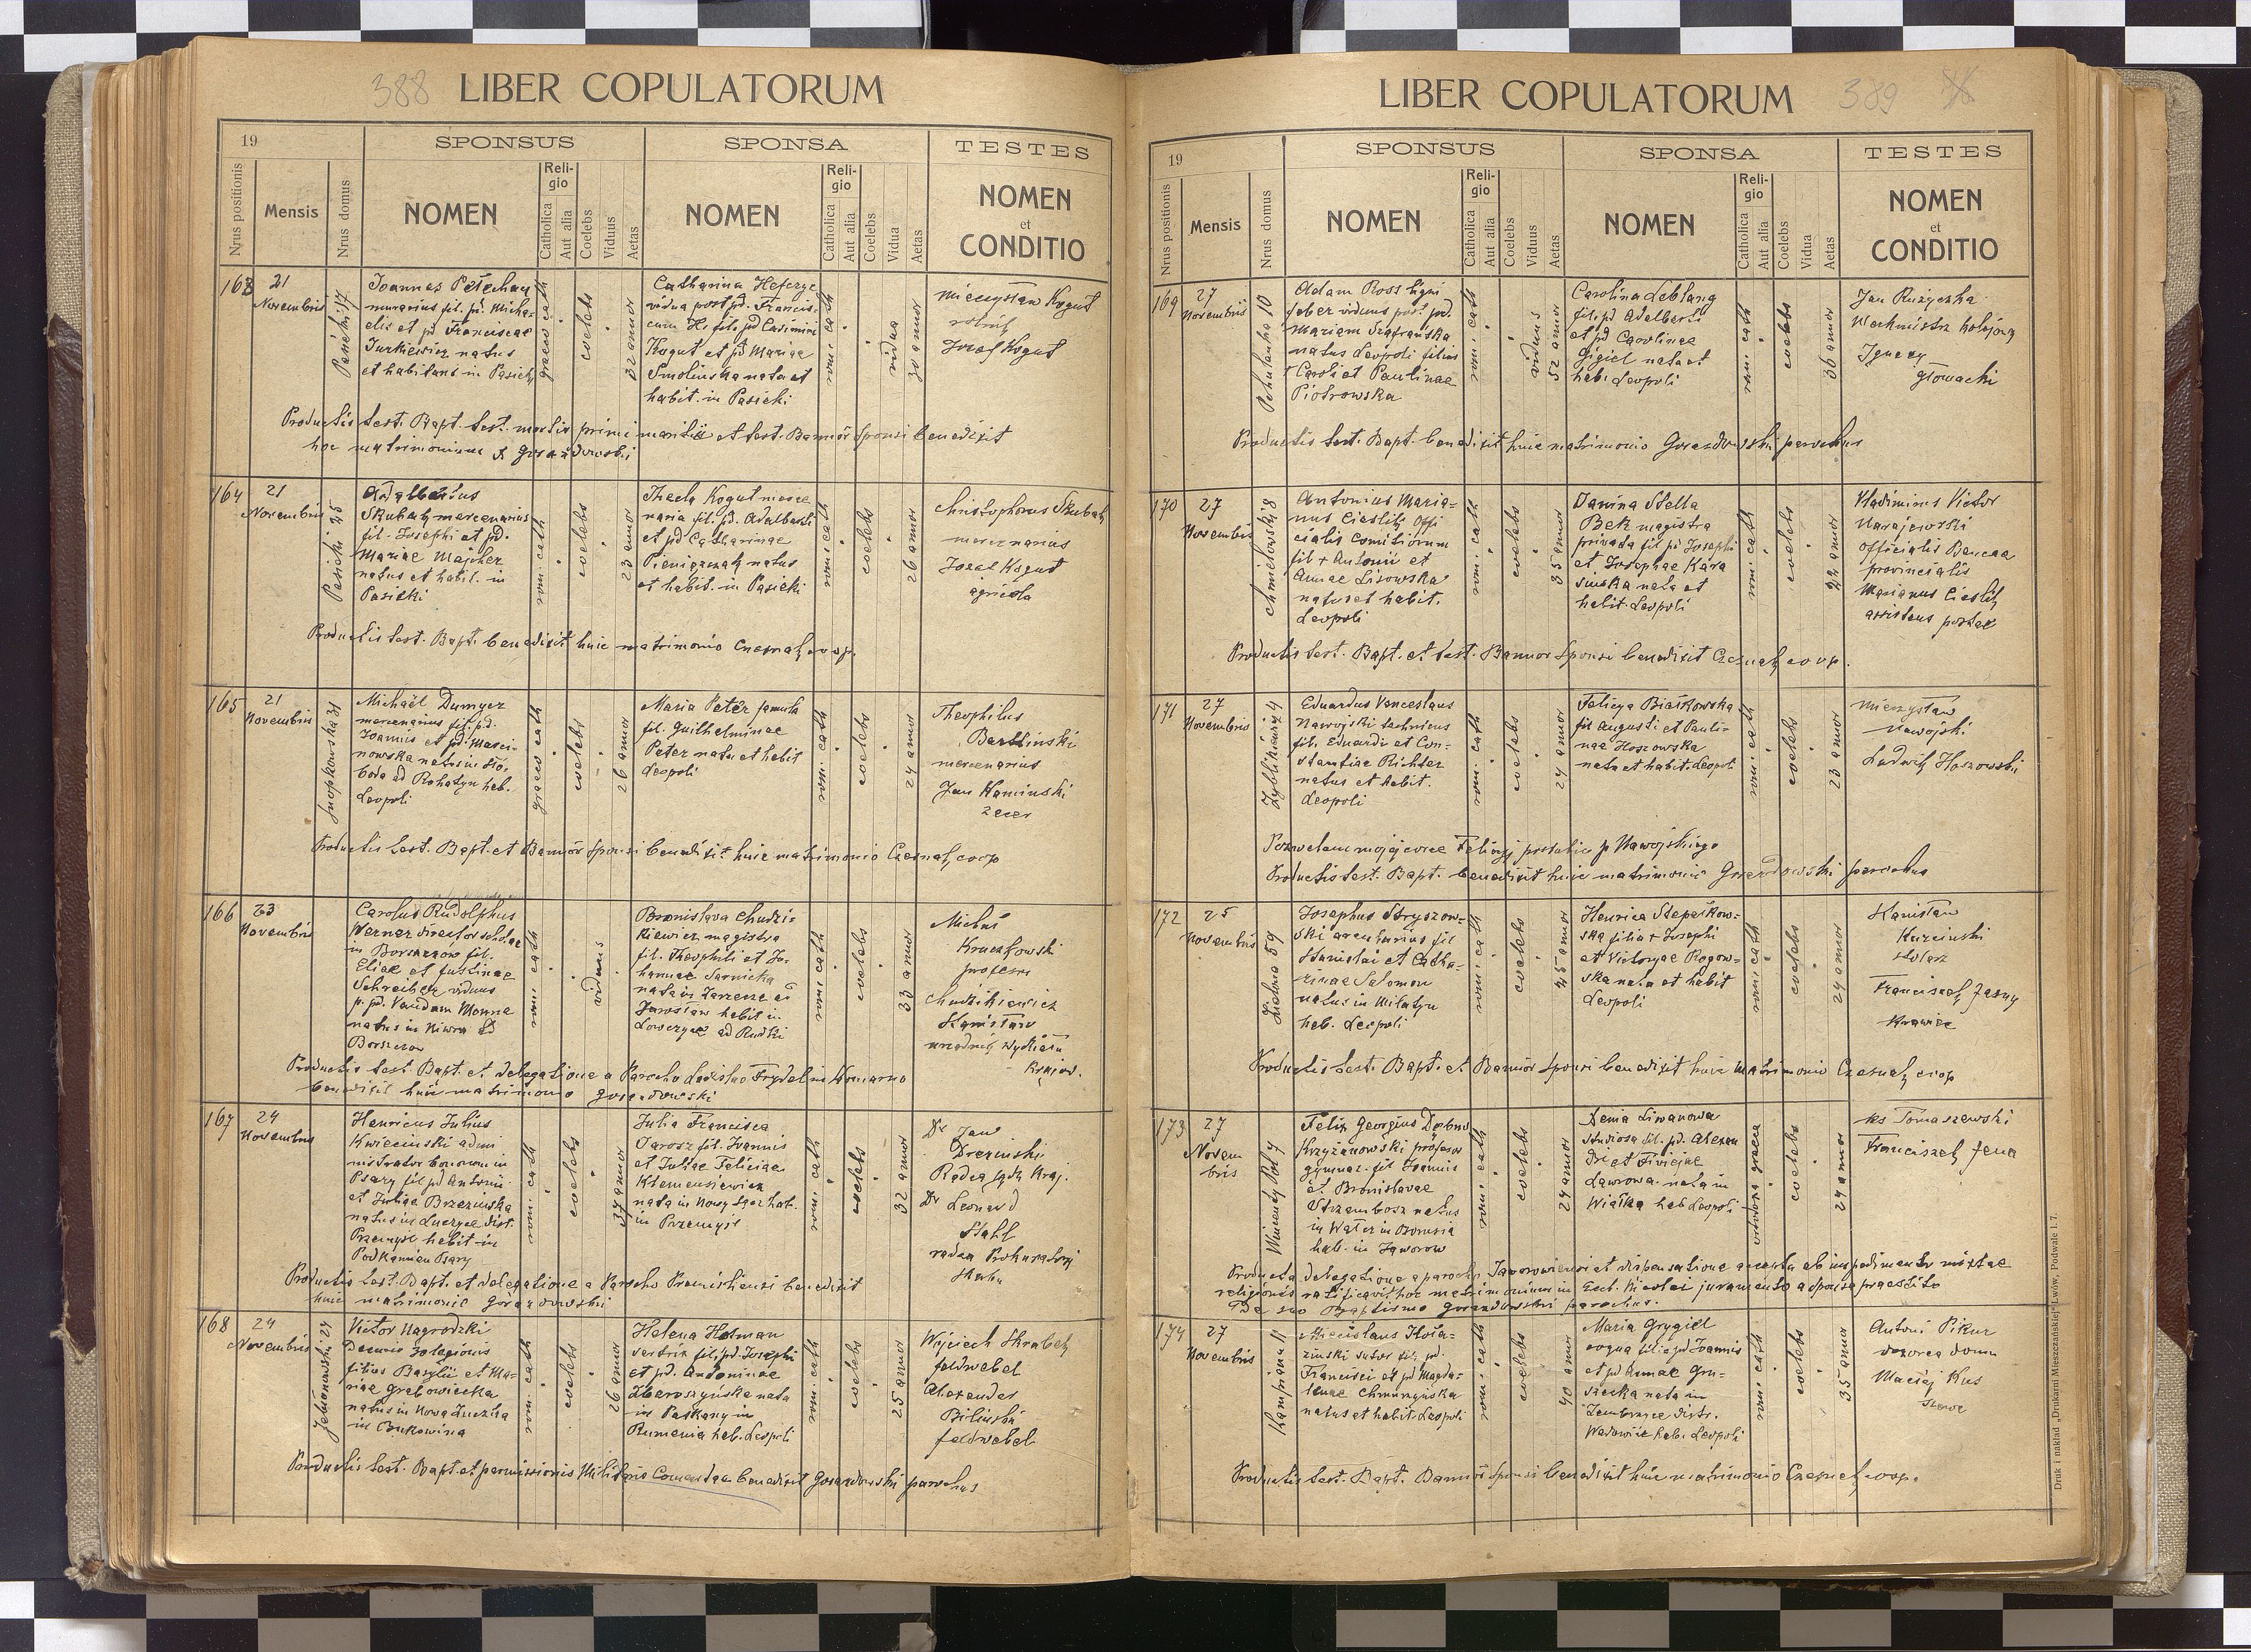 388 LIBER COPULATORUM
19
SPONSUS
SPONSA
TESTES
Nrus positionis
Mensis
Nrus domus
NOMEN
Religio
Catholica
Aut alia
Coelebs
Viduus
Aetas
NOMEN
Religio
Catholica
Aut alia
Coelebs
Vidua
Aetas
NOMEN
et
CONDITIO
163
21
Novembris
Pasieki 17
Joannes Peterhan
murarius fil. pd. Micha-
elis et pd Franciscae
Jurkiewicz natus
et habitans in Pasieki
graeco cath
coelebs
32 annor
Catharina
vidua post pd. Francis-
cum H. fil. pd Casimiri
Kogut et pd Mariae
Smolinska nata et
habit. in Pasieki
rom. cath
vidua
30 annor
Mieczysław Kogut
rolnik
Józef Kogut
Productis test. Bapt. test. mortis primi mariti et test. Bannor Sponsi benedixit
hoc matrimonium X Gorazdowski
164
21
Novembris
Pasieki 25
Adalbertus
Skubatz mercenarius
fil. Josephi et pd.
Mariae Majcher
natus et habit. in
Pasieki
rom. cath
coelebs
23 annor
Thecla Kogut merce
naria fil. pd. Adalberti
et pd Catharinae
Pieniązek natus
et habit. in Pasieki
rom. cath
coelebs
26 annor
Christophorus
mercenarius
Josef Kogut
agricola
Productis test. Bapt. benedixit huic matrimonio Czesnak coop.
165
21
Novembris
31
Michaël Dumycz
mercenarius fil. pd.
Joannis et pd. Marci-
nowska natus in Sło-
boda ad Rohatyn hab.
Leopoli
graeco cath
coelebs
26 annor
Maria Peter famula
fil. Guilhelminae
Peter nata et habit
Leopoli
rom. cath
coelebs
24 annor
Theophilus
Bartlinski
mercenarius
Jan Kaminski
zecer
Productis test. Bapt. et Bannor Sponsi benedixit huic matrimonio Czesnak coop
166
23
Novembris
Carolus Rudolphus
Werner director scholae
in Borszczow fil.
Eliae et Justinae
Schreiber viduus
p. pd. Vandam Monne
natus in Niwra ad
Borszczow
rom. cath
viduus
Bronislava Chudzi-
kiewicz magistra
fil. Theophili et Jo-
hannae Sarnicka
nata in Zarzecze ad
Jarosław habit in
Lowczyce ad Rudki
rom. cath
coelebs
33 annor
Michał
Kruczkowski
profesor
Chudzikiewicz
Stanisław
urzędnik Wydziału
Krajow.
Productis test. Bapt. et delegatione a Parocho Ladislao Frydel in Komarno
benedixit huic matrimonio Gorazdowski
167
24
Novembris
Henricus Julius
Kwieciński admi
nistrator bonorum in
Psary fil pd Antonii
et Juliae Brzezinska
natus in Luczyce dist.
Przemysl habit in
Podkamien Psary
rom. cath
coelebs
37 annor
Julia Francisca
Jarosz fil. Joannis
et Juliae Feliciae
Klemensiewicz
nata in Nowy Sącz hab.
in Przemysl
rom. cath
coelebs
32 annor
Dr Jan
Drezinski
Radca sądu Kraj.
Dr Leonard
Stahl
radca Prokuratorji
Skarbu
Productis test. Bapt. et delegatione a Parocho Premisliensi benedixit
huic matrimonio Gorazdowski
168
24
Novembris
Jabłonowski 24
Victor Nagrodzki
Decurio 30 legionis
filius Basylii et Ma-
riae Grabowiecka
natus in Nowa Zuczka
in Bukowina
rom. cath
coelebs
26 annor
Helena Hotman
sartrix fil. pd. Josephi
et pd. Antoninae
nata
in Paskany in
Rumenia hab. Leopoli
rom. cath
coelebs
25 annor
Wojciech Skrabek
feldwebel
Alexander
Biliński
feldwebel
Productis test. Bapt. et permissionis Militaris Comendae benedixit Gorazdowski parochus
LIBER COPULATORUM 389
19
SPONSUS
SPONSA
TESTES
Nrus positionis
Mensis
Nrus domus
NOMEN
Religio
Catholica
Aut alia
Coelebs
Viduus
Aetas
NOMEN
Religio
Catholica
Aut alia
Coelebs
Vidua
Aetas
NOMEN
et
CONDITIO
169
27
Novembris
Pohulanka 10
Adam Ross ligni
faber viduus post. pd.
Mariam Szafrańska
natus Leopoli filius
+ Caroli et Paulinae
Piotrowska
rom. cath
viduus
52 annor
Carolina Leblang
fil. pd Adalberti
et pd Carolinae
Gigiel nata et
hab. Leopoli
rom. cath
coelebs
36 annor
Jan Ruzyczka
Werkmistrz kolejowy
Ignacy
Głowacki
Productis test. Bapt. benedixit huic matrimonio Gorazdowski parochus
170
27
Novembris
Chmielowski 8
Antonius Maria-
nus Cieslik offi
cialis Comitiorum
fil + Antonii et
Annae Lisowska
natus et habit.
Leopoli
rom. cath
coelebs
35 annor
Janina Stella
Bek magistra
privata fil pd Josephi
et Josephae Kara
sinska nata et
habit. Leopoli
rom. cath
coelebs
22 annor
Vladimirus Victor
Narajewski
officialis Bancae
provincialis
Marianus Cieslik
assistens postae
Productis test. Bapt. et test. Bannor Sponsi benedixit Czesnak coop.
171
27
Novembris
Zyblikiewicz 4
Eduardus Venceslaus
Nawojski technicus
fil. Eduardi et Con-
stantiae Richter
natus et habit.
Leopoli
rom. cath
coelebs
24 annor
Felicya Białkowska
fil Augusti et Pauli-
nae Hoszowska
nata et habit. Leopoli
rom. cath
coelebs
23 annor
Mieczysław
Nawojski
Ludwik Hoszowski
Pozwalam mojej córce Felicyj poślubić p Nawojskiego
Productis test. Bapt. benedixit huic matrimonio Gorazdowski parochus
172
25
Novembris
Zielona 59
Josephus Stryszow-
ski arcularius fil
Stanislai et Catha-
rinae Salomon
natus in Milatyn
hab. Leopoli
rom. cath
coelebs
25 annor
Henrica Stepaśkow-
ska filia + Josephi
et Victoryae Rogow-
ska nata et habit
Leopoli
rom. cath
coelebs
24 annor
Stanisław
Kurcinski
stolarz
Franciszek Jasny
Krawiec
Productis test. Bapt. et Bannor Sponsi benedixit huic Matrimonio Czesnak coop
173
27
Novem
bris
Wincenty Pol 7
Felix Georgius Dobno
Krzyżanowski profesor
gymnaz. fil Joannis
et Bronislavae
Strzembosz natus
in in Borussia
hab. in Jaworow
rom. cath
coelebs
24 annor
Xenia Liwanowa
studiosa fil. pd. Alexan
dri et
Lawrowa nata in
Wiatka hab Leopoli
graeca
coelebs
24 annor
ks Tomaszewski
Franciszek Jena
Producta delegatione a parocho Javoroviensi et dispensatione accepta ab impedimento mixtae
religionis ratificavit hoc matrimonium in Eccl. Nicolai juramento a sponsa praestito
De suo Baptismo Gorazdowski parochus.
174
27
Novembris
Kampiana 11
Miecislaus Koła-
zinski sutor fil. pd.
Francisci et pd Magda-
lenae Chmurzyńska
natus et habit. Leopoli
rom. cath
coelebs
40 annor
Maria Grygiel
coqua filia pd Joannis
et pd Annae Gru-
szecka nata in
Zembrzyce distr.
Wadowice hab. Leopoli
rom. cath
coelebs
35 annor
Antoni Pikur
dozorca domu
Maciej Kus
szewc
Productis test. Bapt. Bannor Sponsi benedixit huic matrimonio Czesnak coop.
Druk i nakład „Drukarni Mieszczańskiej" Lwów, Podwale l. 7.